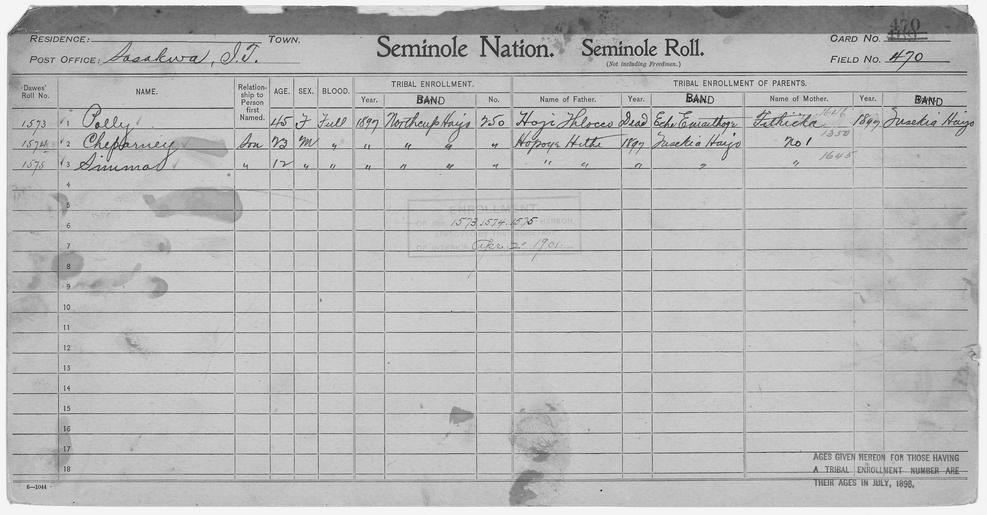 470
RESIDENCE: TOWN. Seminole Nation. Seminole Roll. CARD NO.
POST OFFICE: Sasakwa, I.T. (Not including Freedmen.) FIELD NO. 470
Dawes' Roll No. NAME. Relationship to Person first Named. AGE. SEX. BLOOD. TRIBAL ENROLLMENT. TRIBAL ENROLLMENT OF PARENTS.
Year. BAND No. Name of Father. Year. BAND Name of Mother. Year. BAND
1573 1 Polly 45 F Full 1897 Northcup Hajo 250 Hozi Thlocco Dead Echo Emarthoge Fithicka 1646 1897 Tusekia Hajo
1574 2 Cheparney Son 23 M " " " " " Hopoye Hutke 1897 Tusekia Hajo No 1 1350
1575 3 Simma " 12 " " " " " " " " " " " 1645
4
5
6
7
8
9
10
11
12
13
14
15
16
17
18
ENROLLMENT
1573, 1574, 1575
Apr 2 1901
AGES GIVEN HEREON FOR THOSE HAVING
A TRIBAL ENROLLMENT NUMBER ARE
THEIR AGES IN JULY, 1898.
6—1044